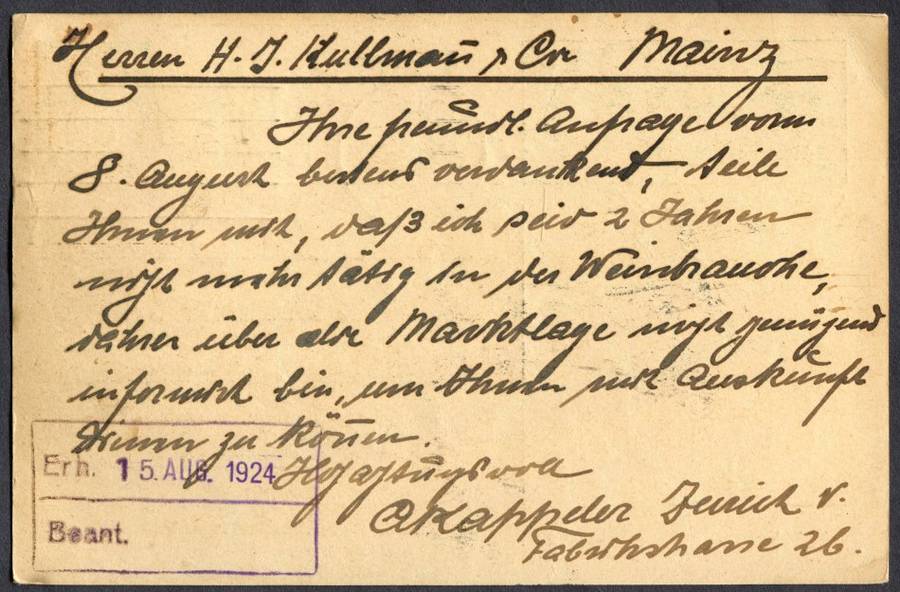 Herren H. J. Kullmañ & Co Mainz
Ihre freundl. Anfrage vom
8. August bestens verdankend, teile
Ihnen mit, daß ich seid 2 Jahren
nicht mehr tätig in der Weinbranche,
daher über die Marktlage nicht genügend
informirt bin, um Ihnen mit Auskunft
dienen zu köñen.
Hochachtungsvoll
A Kappeler Zürich V.
Fabrikstrasse 26.
Erh. 15. AUG. 1924
Beant.